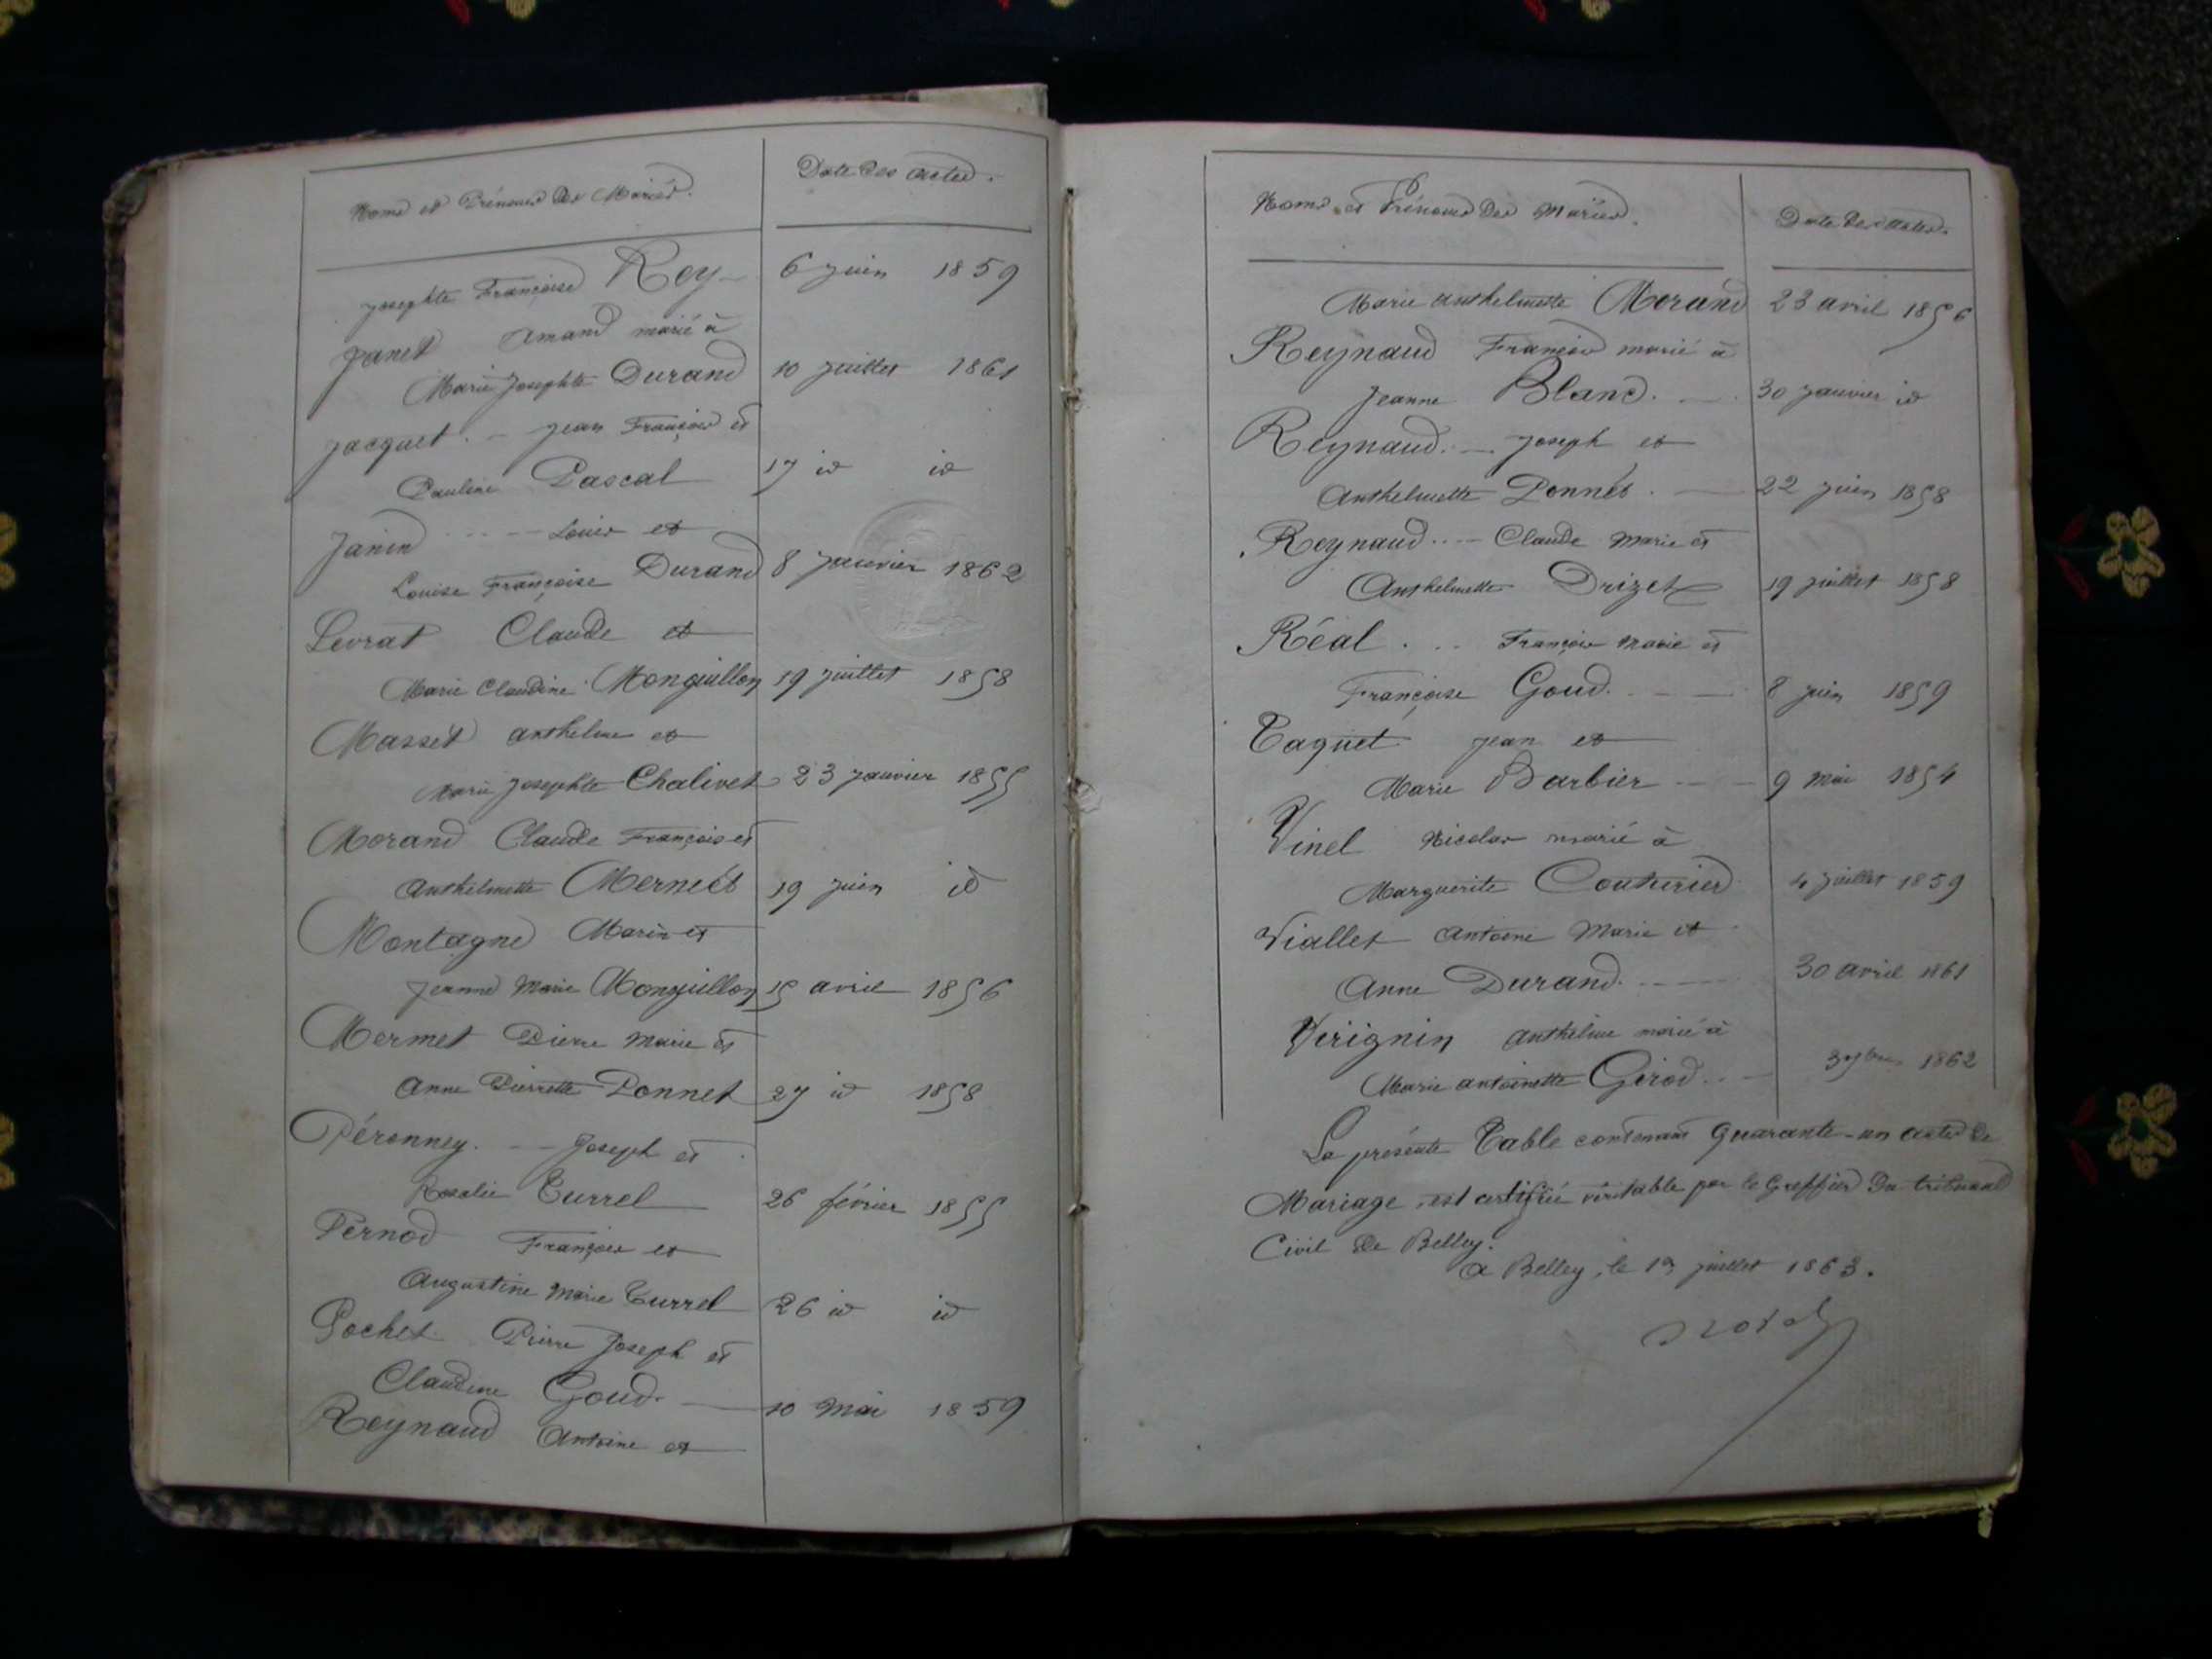 Noms et Prénoms des Mariés.
Date des actes.
Josephte Françoise Rey 6 juin 1859
Janet Amand marié à
Marie Josephte Durand 10 juillet 1861
Jacquet. - Jean François et
Pauline Pascal 17 id id
Janin ---- Louis et
Louise Françoise Durand 8 janvier 1862
Levrat Claude et
Marie Claudine Monguillon 19 juillet 1858
Masset Anthelme et
Marie Josephte Chalivet 23 janvier 1855
Morand Claude François et
Anthelmette Mermet 19 juin id
Montagne Marin et
Jeanne Marie Monguillon 15 avril 1856
Mermet Pierre Marie et
Anne Pierrette Ponnet 27 id 1858
Péronney. -- Joseph et
Rosalie Turrel 26 février 1855
Pernod François et
Augustine Marie Turrel 26 id id
Pochet Pierre Joseph et
Claudine Goud. 10 mai 1859
Reynaud Antoine et
Noms et Prénoms des Mariés.
Date des actes.
Marie Anthelmette Morand 23 avril 1856
Reynaud François marié à
Jeanne Blanc. -- 30 janvier id
Reynaud. -- Joseph et
Anthelmette Ponnet. -- 22 juin 1858
Reynaud.. -- Claude Marie et
Anthelmette Drizet 19 juillet 1858
Réal . .. François Marie et
Françoise Goud. --- 8 juin 1859
Taquet Jean et
Marie Barbier --- 9 mai 1854
Vinel Nicolas marié à
Marguerite Couturier 4 juillet 1859
Viallet Antoine Marie et
Anne Durand. ---- 30 avril 1861
Virignin Anthelme marié à
Marie Antoinette Girod. -- 1862
La présente Table contenant quarante-un actes de
Mariage, est certifiée véritable par le Greffier du tribunal
Civil de Belley.
à Belley, le juillet 1863.